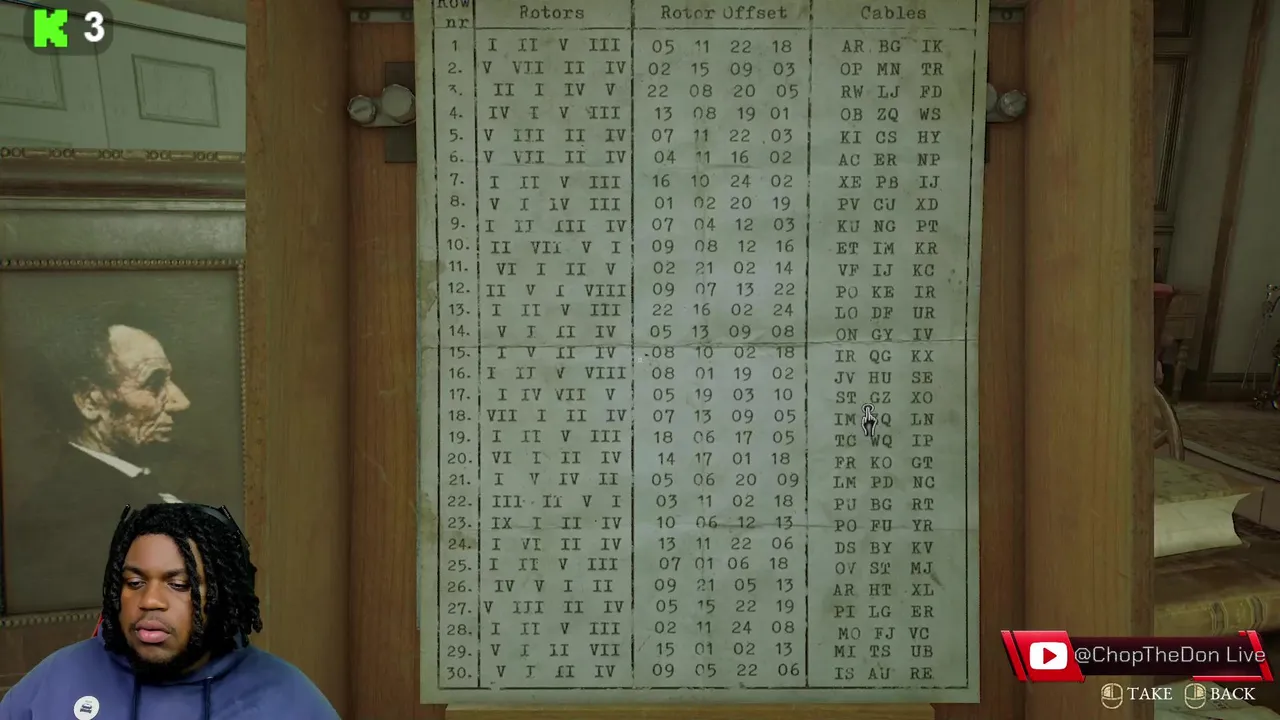 K 3
Row nr Rotors Rotor Offset Cables
1 I II V III 05 11 22 18 AR BG IK
2. V VII II IV 02 15 09 03 OP MN TR
3. II I IV V 22 08 20 05 RW LJ FD
4. IV I V III 13 08 19 01 OB ZQ WS
5. V III II IV 07 11 22 03 KI CS HY
6. V VII II IV 04 11 16 02 AC ER NP
7. I II V III 16 10 24 02 XE PB IJ
8. V I IV III 01 02 20 19 PV CU XD
9. I II III IV 07 04 12 03 KU NG PT
10. II VII V I 09 08 12 16 ET IM KR
11. VI I II V 02 21 02 14 VF IJ KC
12. II V I VIII 09 07 13 22 PO KE IR
13. I II V III 22 16 02 24 LO DF UR
14. V I II IV 05 13 09 08 ON GY IV
15. I V II IV 08 10 02 18 IR QG KX
16. I II V VIII 08 01 19 02 JV HU SE
17. I IV VII V 05 19 03 10 ST GZ XO
18. VII I II IV 07 13 09 05 IM LN
19. I II V III 18 06 17 05 TC WQ IP
20. VI I II IV 14 17 01 18 FR KO GT
21. I V IV II 05 06 20 09 LM PD NC
22. III II V I 03 11 02 18 PU BG RT
23. IX I II IV 10 06 12 13 PO FU YR
24. I VI II IV 13 11 22 06 DS BY KV
25. I II V III 07 01 06 18 OV ST MJ
26. IV V I II 09 21 05 13 AR HT XL
27. V III II IV 05 15 22 19 PI LG ER
28. I II V III 02 11 24 08 MO FJ VC
29. V I II VII 15 01 02 13 MI TS UB
30. V I II IV 09 05 22 06 IS AU RE
@ChopTheDon Live
TAKE BACK